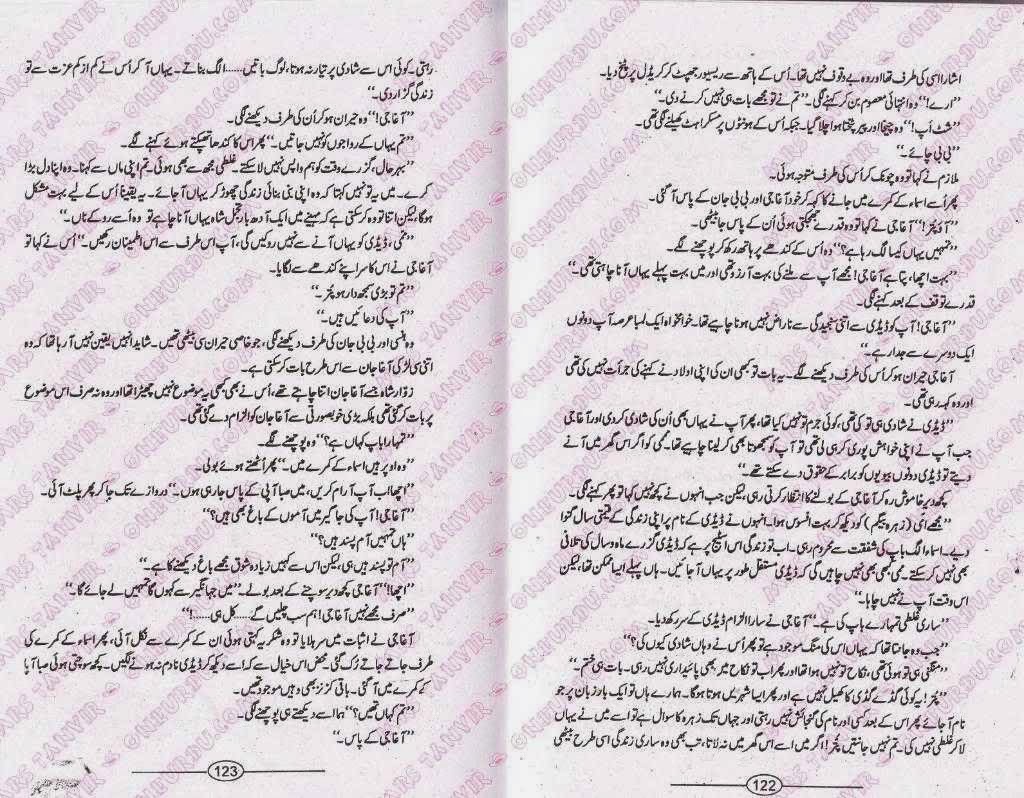 اشارا اسی کی طرف تھا اور وہ بے وقوف نہیں تھا۔ اُس کے ہاتھ سے ریسیور جھپٹ کر کریڈل پر پٹخ دیا۔
’’ارے!‘‘ وہ انتہائی معصوم بن کر کہنے لگی۔ ’’تم نے تو مجھے بات ہی نہیں کرنے دی۔‘‘
’’شٹ اَپ!‘‘ وہ چیخا اور پیر پٹختا ہوا چلا گیا۔ جبکہ اُس کے ہونٹوں پر مسکراہٹ کھیلنے لگی تھی۔
’’بی بی چائے۔‘‘
ملازم نے کہا تو وہ چونک کر اُس کی طرف متوجہ ہوئی۔
پھر اُسے اسماء کے کمرے میں جانے کا کہہ کر خود آغا جی اور بی بی جان کے پاس آ گئی۔
’’آؤ پُتر!‘‘ آغا جی نے کہا تو وہ قدرے جھجکتی ہوئی اُن کے پاس جا بیٹھی۔
’’تمہیں یہاں کیسا لگ رہا ہے؟‘‘ وہ اُس کے کندھے پر ہاتھ رکھ کر پوچھنے لگے۔
’’بہت اچھا، پتا ہے آغا جی! مجھے آپ سے ملنے کی بہت آرزو تھی اور میں بہت پہلے یہاں آنا چاہتی تھی۔‘‘
قدرے توقف کے بعد کہنے لگی۔
’’آغا جی! آپ کو ڈیڈی سے اتنی سنجیدگی سے ناراض نہیں ہونا چاہیے تھا۔ خوامخواہ ایک لمبا عرصہ آپ دونوں
ایک دوسرے سے جدا رہے۔‘‘
آغا جی حیران ہو کر اُس کی طرف دیکھنے لگے۔ یہ بات تو کبھی ان کی اپنی اولاد نے کہنے کی جرأت نہیں کی تھی
اور وہ کہہ رہی تھی۔
’’ڈیڈی نے شادی ہی تو کی تھی، کوئی جرم تو نہیں کیا تھا، پھر آپ نے یہاں بھی اُن کی شادی کر دی اور آغا جی
جب آپ نے اپنی خواہش پوری کر ہی لی تھی تو آپ کو سمجھوتا بھی کر لینا چاہیے تھا۔ ممی کو اگر اس گھر میں آنے
دیتے تو ڈیڈی دونوں بیویوں کو برابر کے حقوق دے سکتے تھے۔‘‘
کچھ دیر خاموش رہ کر آغا جی کے بولنے کا انتظار کرتی رہی لیکن جب انہوں نے کچھ نہیں کہا تو پھر کہنے لگی۔
’’مجھے امی (زہرہ بیگم) کو دیکھ کر بہت افسوس ہوا۔ انہوں نے ڈیڈی کے نام پر اپنی زندگی کے قیمتی سال گنوا
دیے۔ اسماء الگ باپ کی شفقت سے محروم رہی۔ اب تو زندگی اس اسٹیج پر ہے کہ ڈیڈی گزرے ماہ و سال کی تلافی
بھی نہیں کر سکتے۔ ممی کبھی بھی نہیں چاہیں گی کہ ڈیڈی مستقل طور پر یہاں آ جائیں۔ ہاں پہلے ایسا ممکن تھا، لیکن
اس وقت آپ نے نہیں چاہا۔‘‘
’’ساری غلطی تمہارے باپ کی ہے۔‘‘ آغا جی نے سارا الزام ڈیڈی کے سر رکھ دیا۔
’’جب وہ جانتا تھا کہ یہاں اس کی منگ موجود ہے تو پھر اُس نے وہاں شادی کیوں کی؟‘‘
’’منگنی ہی تو ہوئی تھی، نکاح تو نہیں ہوا تھا اور پھر اب تو نکاح میں بھی پائیداری نہیں رہی۔ بات ہی ختم۔‘‘
’’پُتر! یہ کوئی گڈے گڈی کا کھیل نہیں ہے اور پھر ایسا شہر میں ہوتا ہو گا۔ ہمارے ہاں تو ایک بار زبان پر جو
نام آ جائے پھر اس کے بعد کسی اور نام کی گنجائش نہیں رہتی اور جہاں تک زہرہ کا سوال ہے تو اسے میں نے یہاں
لا کر غلطی نہیں کی۔ تم نہیں جانتیں پُتر! اگر میں اسے اس گھر میں نہ لاتا، تب بھی وہ ساری زندگی اسی طرح بیٹھی
122
رہتی۔ کوئی اس سے شادی پر تیار نہ ہوتا، لوگ باتیں...... الگ بناتے۔ یہاں آ کر اُس نے کم از کم عزت سے تو
زندگی گزار دی۔‘‘
’’آغا جی!‘‘ وہ حیران ہو کر اُن کی طرف دیکھنے لگی۔
’’تم یہاں کے رواجوں کو نہیں جانتیں۔‘‘ پھر اس کا کندھا تھپکتے ہوئے کہنے لگے۔
’’بہرحال، گزرے وقت کو ہم واپس نہیں لا سکتے۔ غلطی مجھ سے بھی ہوئی۔ تم اپنی ماں سے کہنا۔ وہ اپنا دل بڑا
کرے۔ میں یہ تو نہیں کہتا کہ وہ اپنی بنی بنائی زندگی چھوڑ کر یہاں آ جائے۔ یہ یقیناً اُس کے لیے بہت مشکل
ہو گا، لیکن اتنا تو وہ کر سکتی ہے کہ مہینے میں ایک آدھ بار تجمل شاہ یہاں آنا چاہے تو وہ اُسے روکے ناں۔‘‘
’’ممی، ڈیڈی کو یہاں آنے سے نہیں روکیں گی، آپ اس طرف سے اس اطمینان رکھیں۔‘‘ اُس نے کہا تو
آغا جی نے اُس کا سر اپنے کندھے سے لگا لیا۔
’’تم تو بڑی سمجھ دار ہو پُتر۔‘‘
’’آپ کی دعائیں ہیں۔‘‘
وہ ہنسی اور بی بی جان کی طرف دیکھنے لگی، جو خاصی حیران سی بیٹھی تھیں۔ شاید انہیں یقین نہیں آ رہا تھا کہ وہ
اتنی سی لڑکی آغا جان سے اس طرح بات کر سکتی ہے۔
زوار شاہ جسے آغا جان اتنا چاہتے تھے، اُس نے بھی کبھی یہ موضوع نہیں چھیڑا تھا اور وہ نہ صرف اس موضوع
پر بات کر گئی تھی بلکہ بڑی خوبصورتی سے آغا جان کو الزام دے گئی تھی۔
’’تمہارا باپ کہاں ہے؟‘‘ وہ پوچھنے لگے۔
’’وہ اوپر ہیں اسماء کے کمرے میں۔‘‘ پھر اُٹھتے ہوئے بولی۔
’’اچھا اب آپ آرام کریں، میں صبا آپی کے پاس جا رہی ہوں۔‘‘ دروازے تک جا کر پھر پلٹ آئی۔
’’آغا جی! آپ کی جاگیر میں آموں کے باغ بھی ہیں؟‘‘
’’ہاں تمہیں آم پسند ہیں؟‘‘
’’آم تو پسند ہیں ہی، لیکن اس سے کہیں زیادہ شوق مجھے باغ دیکھنے کا ہے۔‘‘
’’اچھا!‘‘ آغا جی کچھ دیر سوچنے کے بعد بولے۔ ’’میں جہانگیر سے کہوں گا تمہیں لے جائے گا۔‘‘
’’صرف مجھے نہیں آغا جی! ہم سب چلیں گے...... کل ہی......!‘‘
آغا جی نے اثبات میں سر ہلایا تو وہ شکریہ کہتی ہوئی ان کے کمرے سے نکل آئی، پھر اسماء کے کمرے کی
طرف جاتے جاتے رُک گئی۔ محض اس خیال سے کہ اسے دیکھ کر ڈیڈی نادم نہ ہونے لگیں۔ کچھ سوچتی ہوئی صبا آپا
کے کمرے میں آ گئی۔ باقی کزنز بھی وہیں موجود تھیں۔
’’تم کہاں تھیں؟‘‘ ہما اسے دیکھتے ہی پوچھنے لگی۔
’’آغا جی کے پاس۔‘‘
123